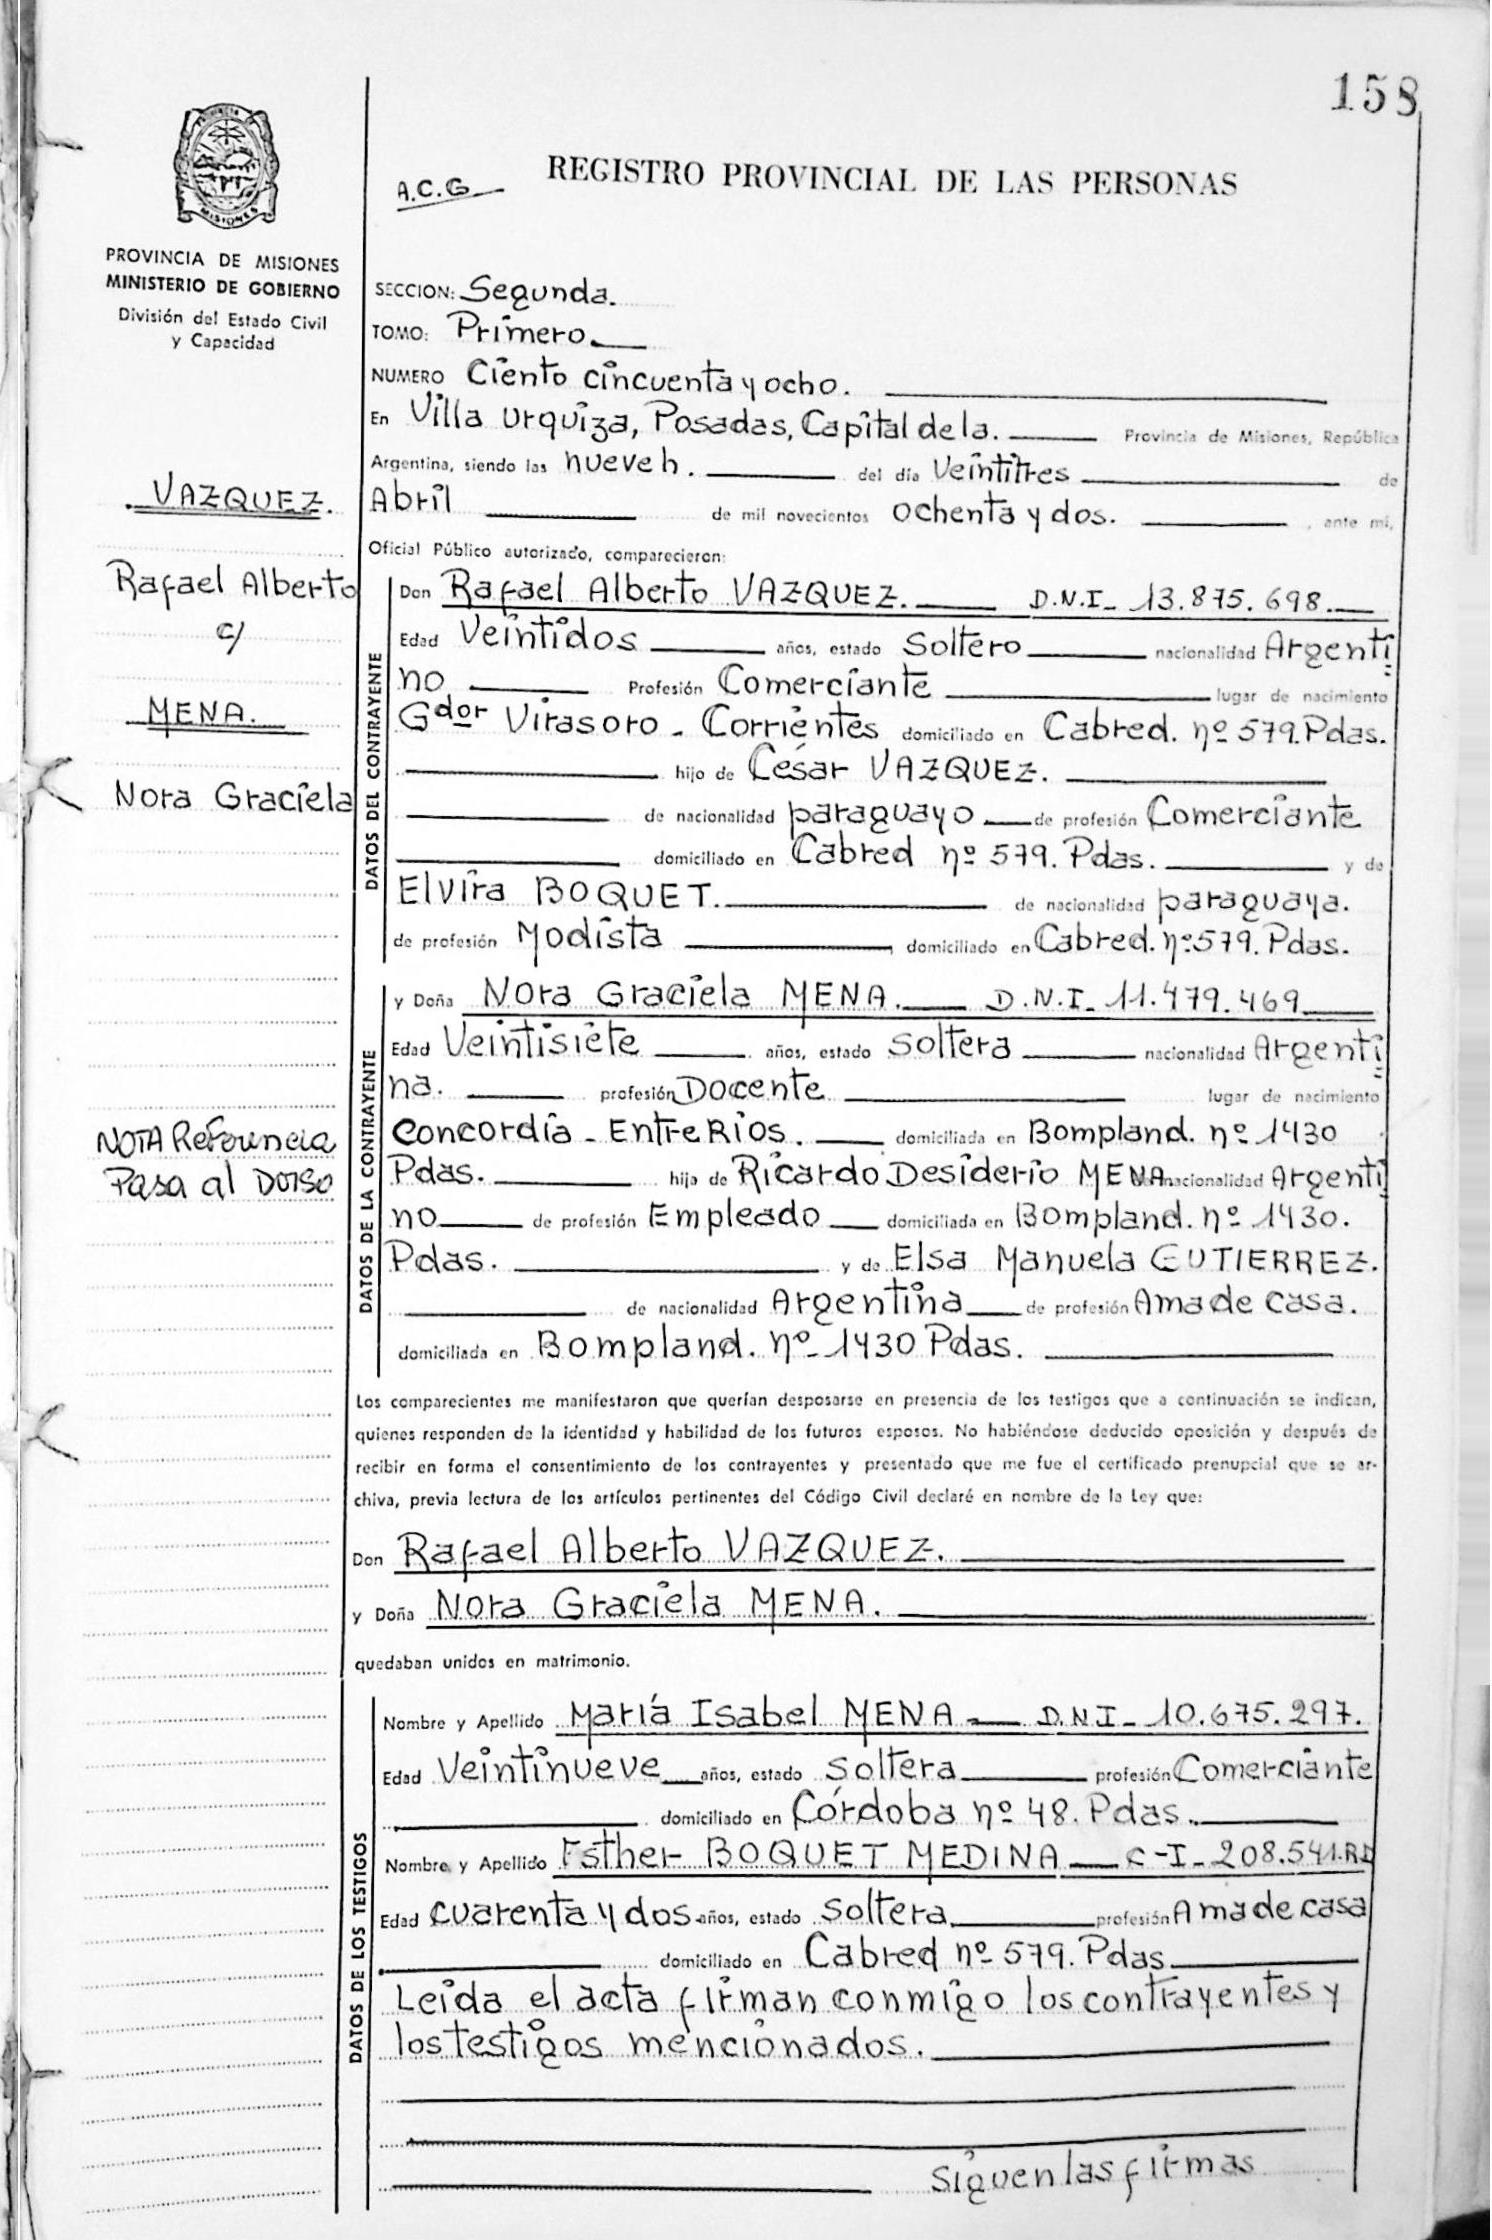 158
PROVINCIA
MISIONES
PROVINCIA DE MISIONES
MINISTERIO DE GOBIERNO
División del Estado Civil
y Capacidad
VAZQUEZ.
Rafael Alberto
c/
MENA.
Nora Graciela
NOTA Referencia
Pasa al Dorso
A.C.G
REGISTRO PROVINCIAL DE LAS PERSONAS
SECCION: Segunda.
TOMO: Primero.
NUMERO Ciento cincuenta y ocho.
En Villa Urquiza, Posadas, Capital de la. Provincia de Misiones, República
Argentina, siendo las nueve h. del día Veintitres de
Abril de mil novecientos ochenta y dos. , ante mi,
Oficial Público autorizado, comparecieron:
DATOS DEL CONTRAYENTE
Don Rafael Alberto VAZQUEZ. D.N.I- 13.875.698.
Edad Veintidos años, estado Soltero nacionalidad Argenti
no Profesión Comerciante lugar de nacimiento
Gdor Virasoro - Corrientes domiciliado en Cabred. nº 579. Pdas.
hijo de César VAZQUEZ.
de nacionalidad paraguayo de profesión Comerciante
domiciliado en Cabred nº 579. Pdas. y de
Elvira BOQUET. de nacionalidad paraguaya.
de profesión Modista , domiciliado en Cabred. nº 579. Pdas.
DATOS DE LA CONTRAYENTE
y Doña Nora Graciela MENA. D.N.I- 11.479.469
Edad Veintisiete años, estado Soltera nacionalidad Argenti
na. profesión Docente lugar de nacimiento
Concordia - Entre Rios. domiciliada en Bompland. nº 1430
Pdas. hija de Ricardo Desiderio MENA de nacionalidad Argenti
no de profesión Empleado domiciliada en Bompland. nº 1430.
Pdas. y de Elsa Manuela GUTIERREZ.
de nacionalidad Argentina de profesión Ama de casa.
domiciliada en Bompland. nº- 1430 Pdas.
Los comparecientes me manifestaron que querían desposarse en presencia de los testigos que a continuación se indican,
quienes responden de la identidad y habilidad de los futuros esposos. No habiéndose deducido oposición y después de
recibir en forma el consentimiento de los contrayentes y presentado que me fue el certificado prenupcial que se ar-
chiva, previa lectura de los artículos pertinentes del Código Civil declaré en nombre de la Ley que:
Don Rafael Alberto VAZQUEZ.
y Doña Nora Graciela MENA.
quedaban unidos en matrimonio.
DATOS DE LOS TESTIGOS
Nombre y Apellido María Isabel MENA - D.N.I- 10.675.297.
Edad Veintinueve años, estado soltera profesión Comerciante
domiciliado en Córdoba nº 48. Pdas.
Nombre y Apellido Esther BOQUET MEDINA C-I- 208.541.
Edad cuarenta y dos años, estado soltera profesión Ama de casa
domiciliado en Cabred nº 579. Pdas
Leida el acta firman conmigo los contrayentes y
los testigos mencionados.
Siguen las firmas